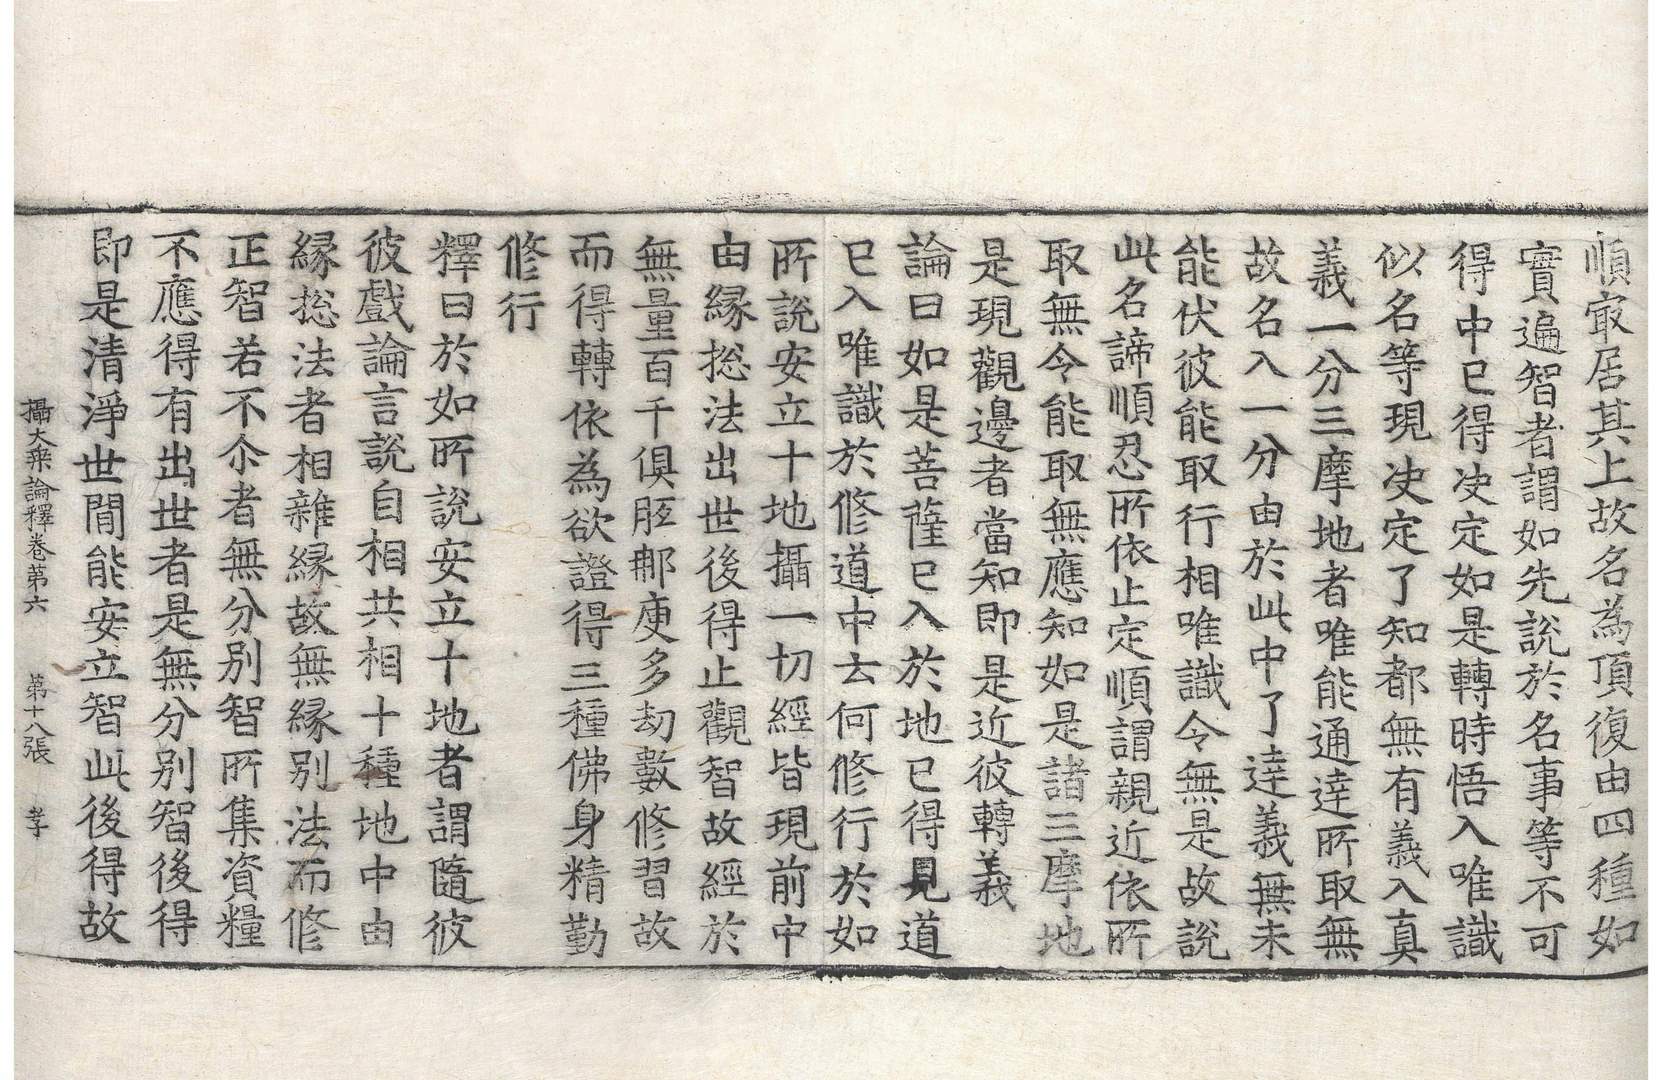 順㝡居其上故名為頂復由四種如
實遍智者謂如先說於名事等不可
得中已得决定如是轉時悟入唯識
似名等現决定了知都無有義入真
義一分三摩地者唯能通達所取無
故名入一分由於此中了達義無未
能伏彼能取行相唯識令無是故說
此名諦順忍所依止定順謂親近依所
取無令能取無應知如是諸三摩地
是現觀邊者當知即是近彼轉義
論曰如是菩薩已入於地已得見道
已入唯識於修道中云何修行於如
所說安立十地攝一切經皆現前中
由縁揔法出世後得止觀智故經於
無量百千俱胝郍庾多劫數修習故
而得轉依為欲證得三種佛身精勤
修行
釋曰於如所說安立十地者謂隨彼
彼戲論言說自相共相十種地中由
縁揔法者相雜縁故無縁別法而修
正智若不尒者無分別智所集資糧
不應得有出世者是無分別智後得
即是清淨世間能安立智此後得故
攝大乘論釋卷第六 第十八張 孝